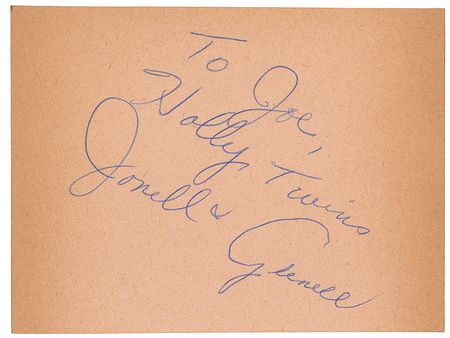 To Joe,
Holly Twins
Jonell &
Glenell